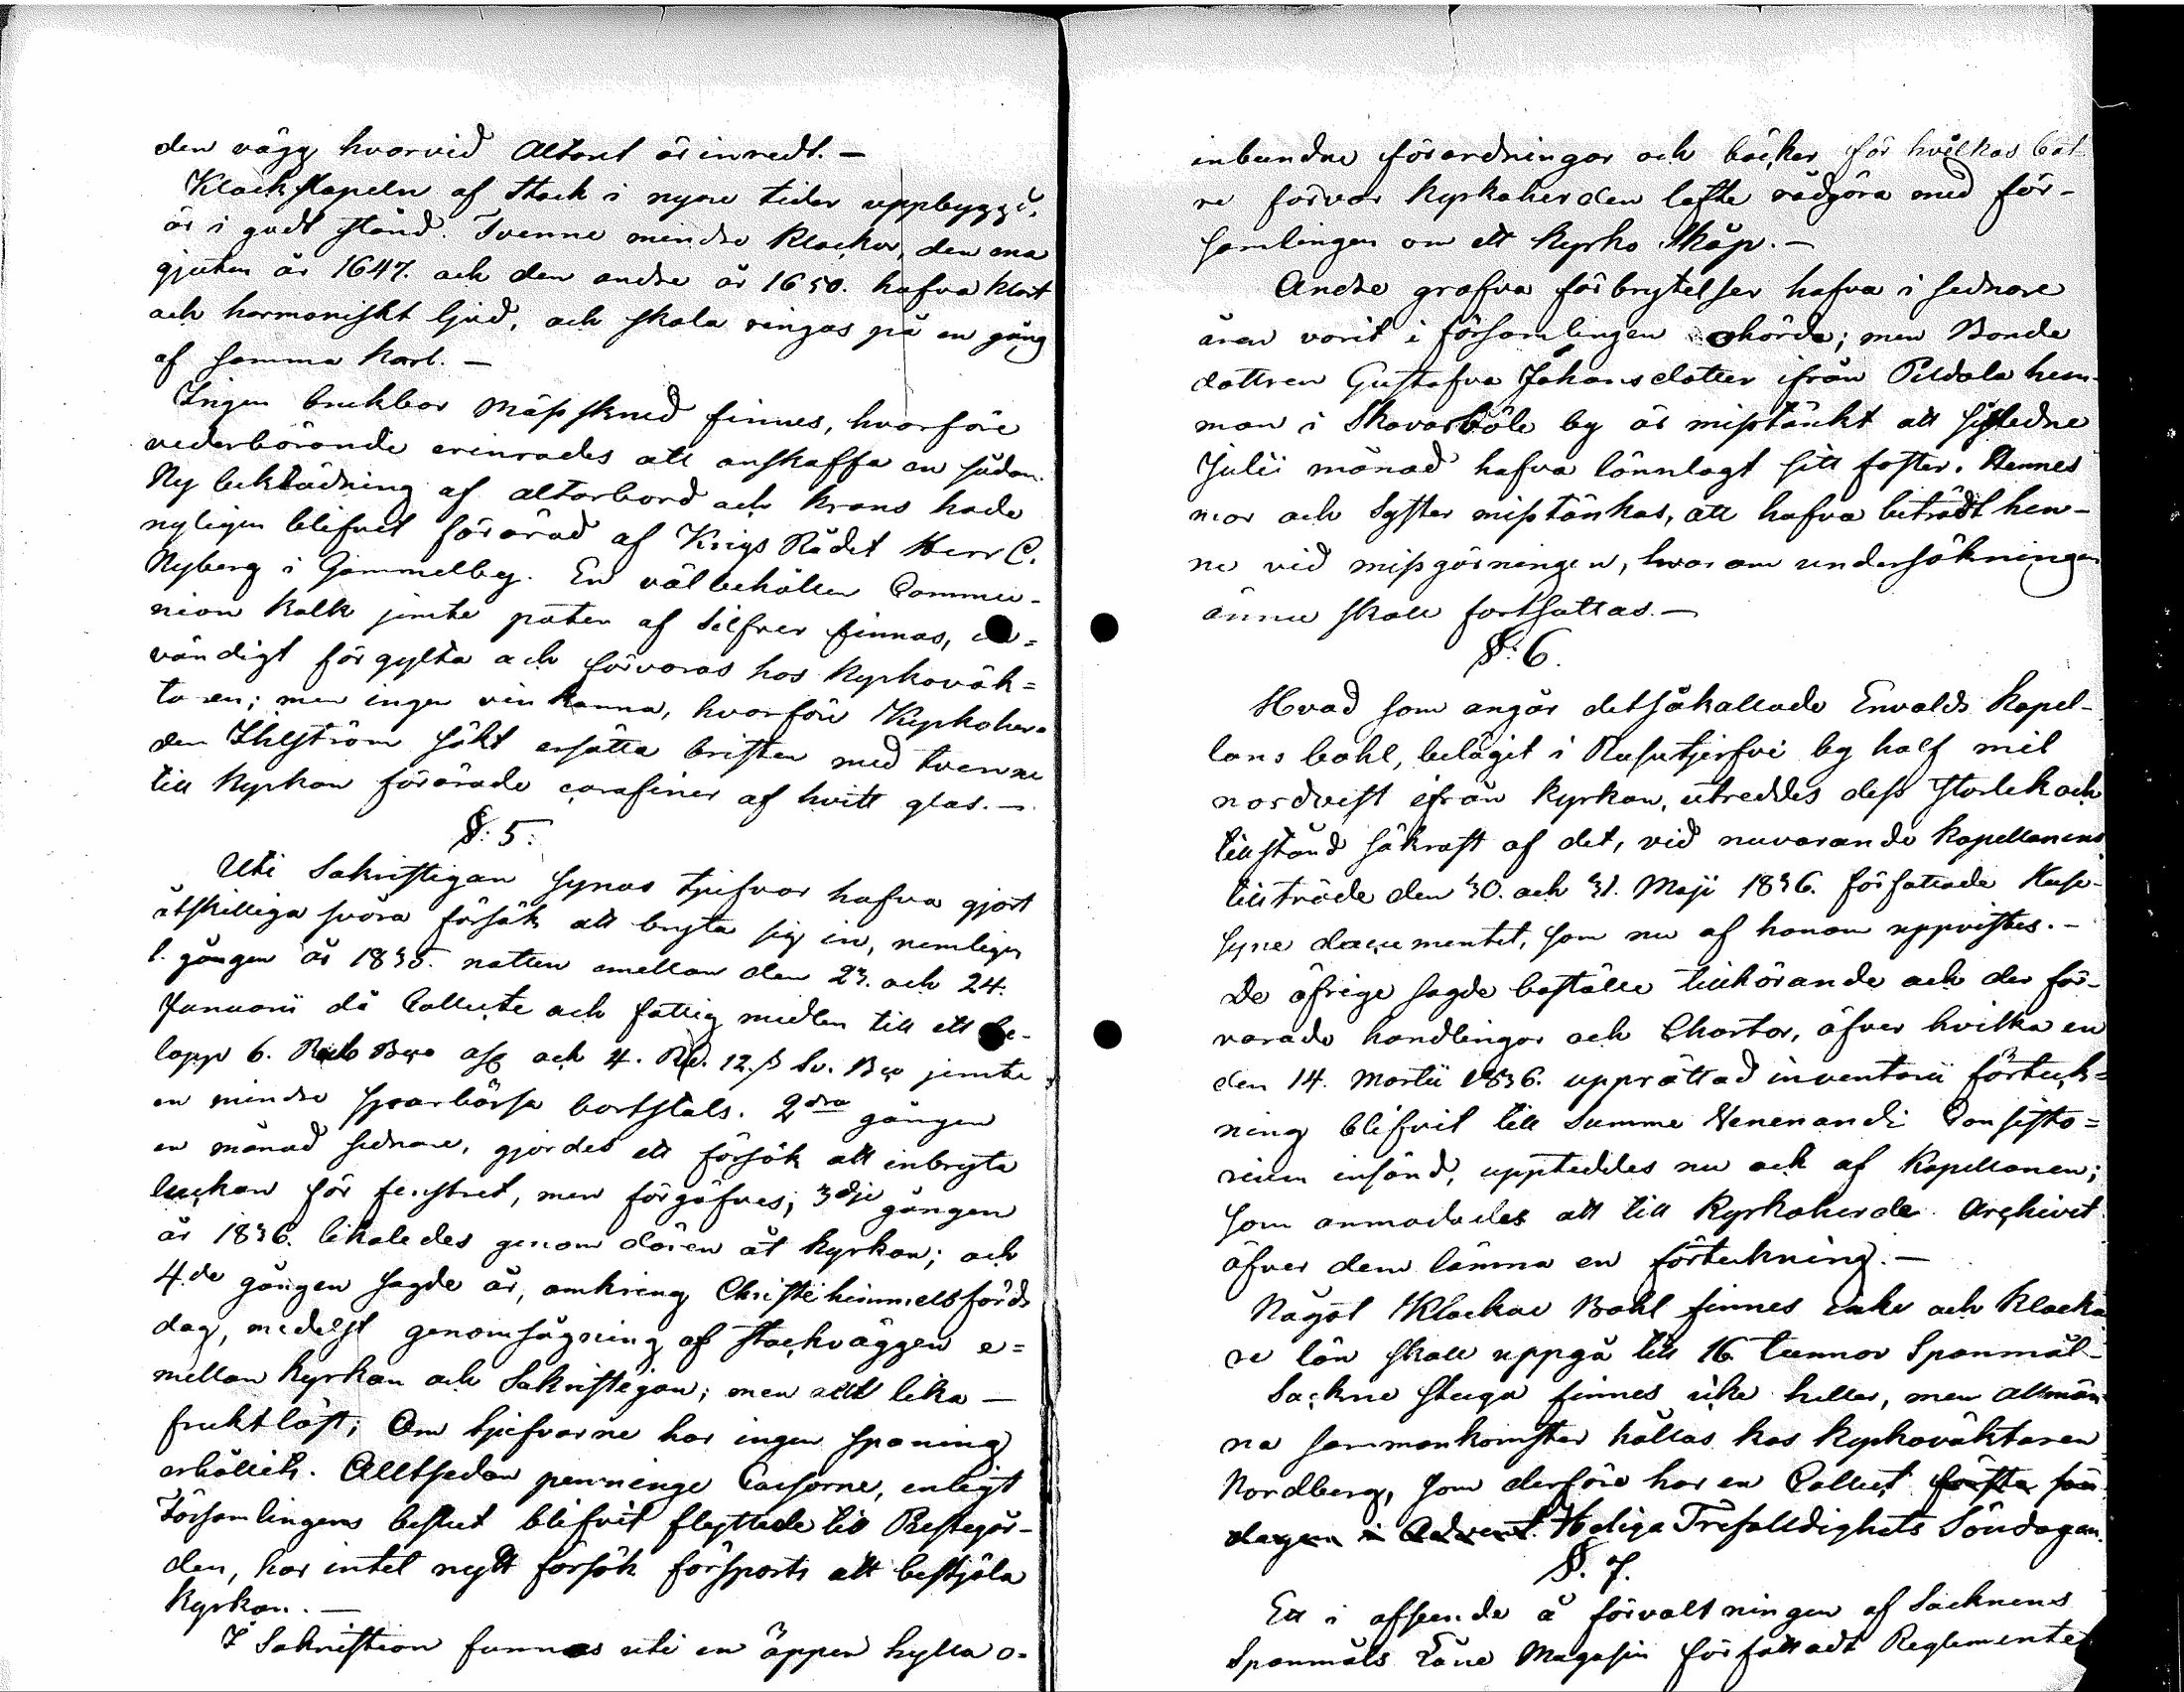 den vägg hvarvid Altaret är inredt. —
Klockstapeln af stock i nyare tider uppbyggd,
är i godt stånd. Tvenne mindre klockor, den ena
gjuten år 1647. och den andre år 1650. hafva klart
och harmoniskt ljud, och skola ringas på en gång
af samma karl. —
Ingen brukbar Mässskrud finnes, hvarföre
vederbörande erinrades att anskaffa en sådan.
Ny beklädning af altarbord och krans hade
nyligen blifvet förärad af Krigs Rådet Herr C.
Nyberg i Gammelby. En väl behållen Commu-
nion kalk jemte paten af Silfver finnas, in=
vändigt förgylta och förvaras hos kyrkoväk=
taren; men ingen vin kanna, hvarföre Kyrkoher=
den Ihlström sökt ersätta bristen med tvenne
till kyrkan förärade carafiner af hvitt glas. —
§: 5:
Uti Sakristigan synas tjufvar hafva gjort
åtskilliga svåra försök att bryta sig in, nemligen
1. gången år 1835. natten emellan den 23. och 24.
Januarii då Collecte och fattig medlen till ett be-
lopp 6. Rub Bço ass och 4. Rd. 12. ß Sv. Bço jemte
en mindre sparbössa bortstals. 2dra gången
en månad sednare, gjordes ett försök att inbryta
luckan för fenstret, men förgäfves; 3dje gången
år 1836. likaledes genom dören åt kyrkan; och
4.de gången sagde år, omkring Christi himmelsfärds
dag, medelst genomsågning af stockväggen e=
mellan kyrkan och Sakristigan; men allt lika —
fruktlöst; Om tjufvarne har ingen spaning
erhållits. Alltsedan penninge Cassorne, enligt
Församlingens beslut blifvit flyttade till Prestegår-
den, har intet nytt försök försports att bestjäla
kyrkan. —
I Sakristian funnos uti en öppen hylla o=
inbundne förordningar och böcker för hvilkas bät-
re förvar kyrkoherden lofte rådgöra med för-
samlingen om ett kyrko skåp. —
Andre grofva förbrytelser hafva i sednare
åren varit i församlingen ohörda; men Bonde
dottren Gustafva Johansdotter ifrån Pildala hem-
man i Skavarböle by är misstänkt att sistledne
Julii månad hafva lönnlagt sitt foster. Hennes
mor och Syster misstänkas, att hafva biträdt hen-
ne vid missgärningen, hvarom undersökningen
ännu skall fortsättas. —
§: 6.
Hvad som angår det såkallade Envalds Kapel-
lans bohl, beläget i Rusutjerfvi by half mil
nordvest ifrån kyrkan, utreddes dess storlek och
tillstånd säkrast af det, vid nuvarande kapellanens
tillträde den 30. och 31. Maji 1836. författade Huse-
syne documentet, som nu af honom uppvistes. —
De öfrige sagde boställe tillhörande och der för-
varade handlingar och Chartor, öfver hvilka en
den 14. Martii 1836. upprättad inventarii förteck-
ning blifvit till Summe Venerandi Consisto=
rium insänd, uppteddes nu och af Kapellanen;
som anmodades att till Kyrkoherde Archivet
öfver dem lämna en förteckning. —
Något Klockare Bohl finnes icke och klocka
re lön skall uppgå till 16 tunnor Spanmål —
Sockne stuga finnes icke heller, men allmän
na sammankomster hållas hos kyrkoväktaren
Nordberg, som derföre har en Collect första sön
dagen i Advent. Heliga Trefalldighets Söndagen.
§. 7.
Ett i afseende å förvaltningen af Socknens
Spanmåls Låne Magasin författadt Reglemente